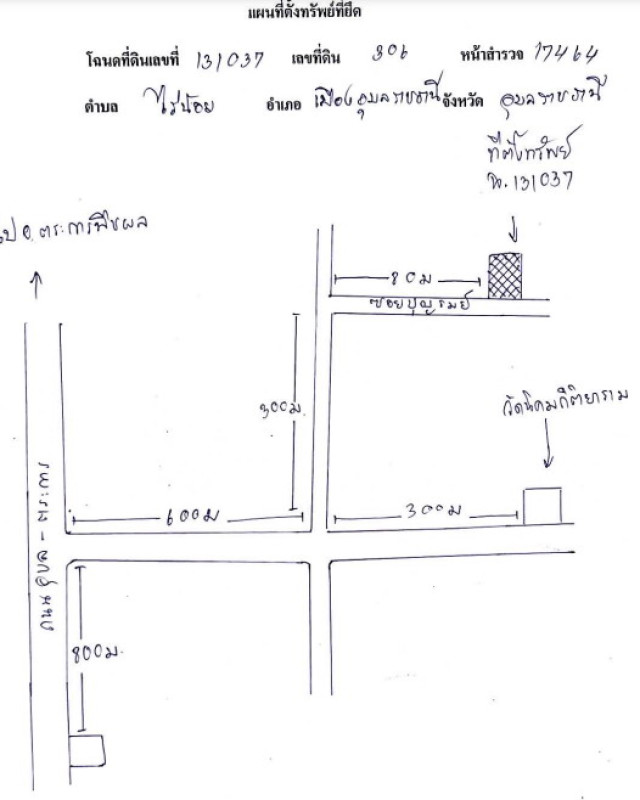 แผนที่ตั้งทรัพย์ที่ยึด
โฉนดที่ดินเลขที่ 131037 เลขที่ดิน 306 หน้าสำรวจ 17464
ตำบล ไร่น้อย อำเภอ เมืองอุบลราชธานี จังหวัด อุบลราชธานี
ที่ตั้งทรัพย์
น.131037
ไป อ.ตระการพืชผล
80 ม
ซอยบุญรมย์
300ม.
วัดนิคมกิติยาราม
600ม
300ม
ถนนอุบล - ตระการ
800ม.